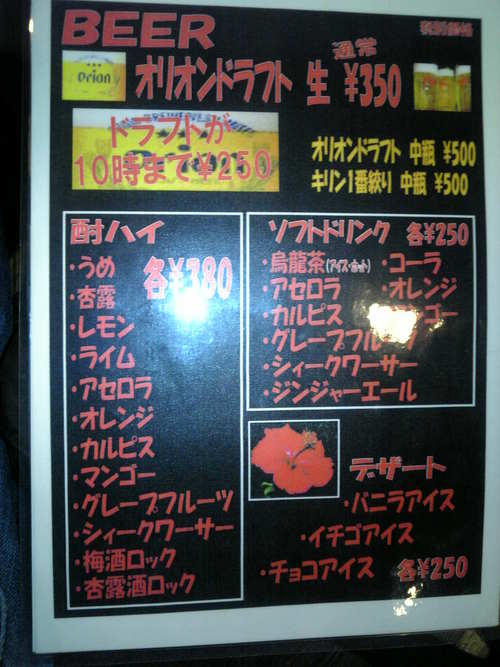 BEER
税別価格
通常
Orion
オリオンドラフト 生 ¥350
ドラフトが
10時まで¥250
オリオンドラフト 中瓶 ¥500
キリン1番絞り 中瓶 ¥500
酎ハイ
・うめ
各¥380
・杏露
・レモン
・ライム
・アセロラ
・オレンジ
・カルピス
・マンゴー
・グレープフルーツ
・シィークワーサー
・梅酒ロック
・杏露酒ロック
ソフトドリンク 各¥250
・烏龍茶(アイス・ホット) ・コーラ
・アセロラ ・オレンジ
・カルピス ・マンゴー
・グレープフルーツ
・シィークワーサー
・ジンジャーエール
デザート
・バニラアイス
・イチゴアイス
・チョコアイス 各¥250